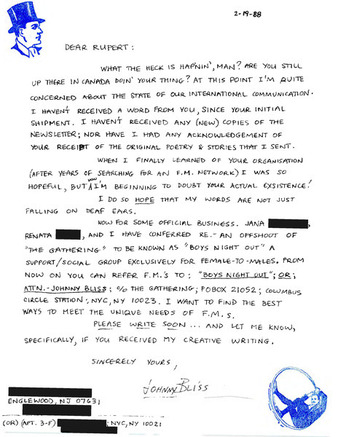 2-19-88
DEAR RUPERT:
WHAT THE HECK IS HAP'NIN', MAN? ARE YOU STILL
UP THERE IN CANADA DOIN' YOUR THING? AT THIS POINT I'M QUITE
CONCERNED ABOUT THE STATE OF OUR INTERNATIONAL COMMUNICATION.
I HAVEN'T RECEIVED A WORD FROM YOU, SINCE YOUR INITIAL
SHIPMENT. I HAVEN'T RECEIVED ANY (NEW) COPIES OF THE
NEWSLETTER; NOR HAVE I HAD ANY ACKNOWLEDGEMENT OF
YOUR RECEIPT OF THE ORIGINAL POETRY & STORIES THAT I SENT.
WHEN I FINALLY LEARNED OF YOUR ORGANISATION
(AFTER YEARS OF SEARCHING FOR AN F.M. NETWORK) I WAS SO
HOPEFUL, BUT NOW I'M BEGINNING TO DOUBT YOUR ACTUAL EXYSISTENCE!
I DO SO HOPE THAT MY WORDS ARE NOT JUST
FALLING ON DEAF EARS.
NOW FOR SOME OFFICIAL BUSINESS. JANA
RENATA , AND I HAVE CONFERRED RE.- AN OFFSHOOT OF
"THE GATHERING" TO BE KNOWN AS "BOYS NIGHT OUT" A
SUPPORT/SOCIAL GROUP EXCLUSIVELY FOR FEMALE-TO-MALES. FROM
NOW ON YOU CAN REFER F.M.'S TO: "BOYS NIGHT OUT"; OR;
ATTN.-JOHNNY BLISS: C/O THE GATHERING; POBOX 21052; COLUMBUS
CIRCLE STATION; NYC, NY 10023. I WANT TO FIND THE BEST
WAYS TO MEET THE UNIQUE NEEDS OF F.M.S.
PLEASE WRITE SOON ... AND LET ME KNOW,
SPECIFICALLY, IF YOU RECEIVED MY CREATIVE WRITING.
SINCERELY YOURS,
JOHNNY BLISS
ENGLEWOOD, NJ 07631
(OR) (APT. 3-F) ; NYC, NY 10021